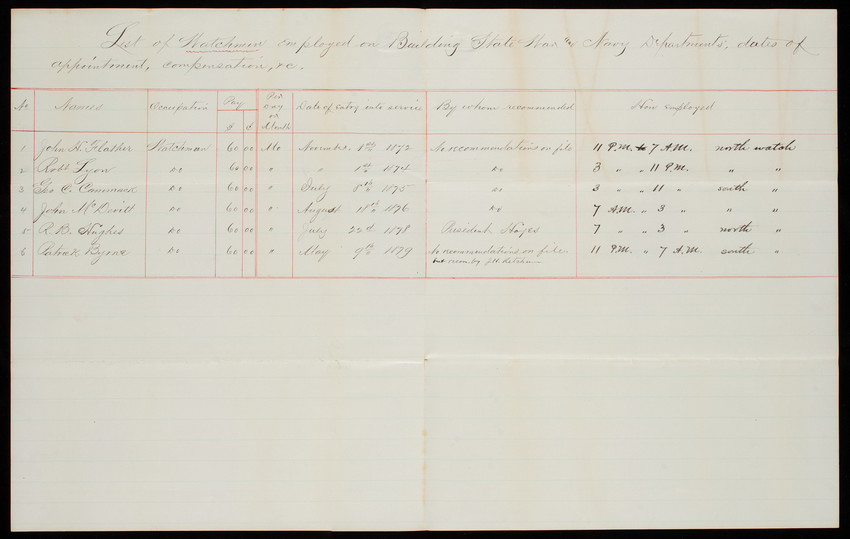 List of Watchmen employed on Building State War & Navy Departments, dates of
appointment, compensation, &c.
No Names Occupation Pay $ ¢ Per Day or Month Date of entry into service By whom recommended How employed
1 John H. Flasher Watchman 60 00 Mo November 8th 1872 No recommendations on file 11 P.M. to 7 A.M. north watch
2 Robt Lyon Do 60 00 " " 1st 1874 Do 3 " " 11 P.M. " "
3 Geo C. Cammack Do 60 00 " July 8th 1875 Do 3 " " 11 " south "
4 John McDevitt Do 60 00 " August 18th 1876 Do 7 A.M. " 3 " " "
5 R. B. Hughes Do 60 00 " July 22d 1878 President Hayes 7 " " 3 " north "
6 Patrick Byone Do 60 00 " May 9th 1879 No recommendations on file 11 P.M. " 7 A.M. south "
but recom. by